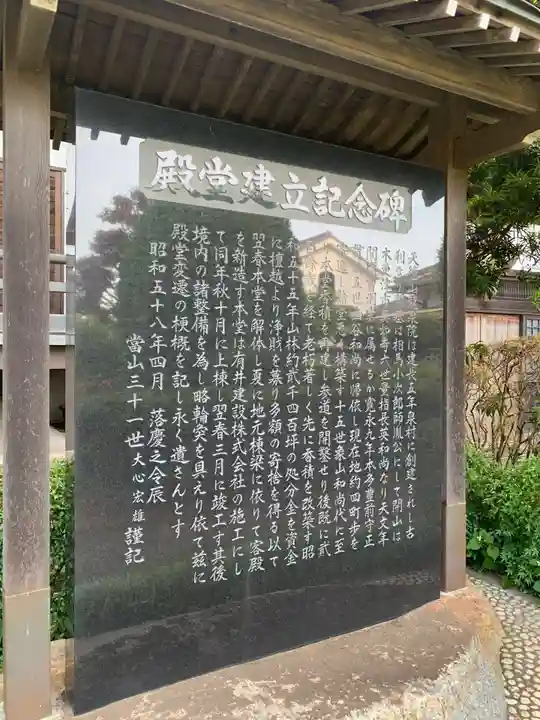 殿堂建立記念碑
院は建長五年泉村に創建されし古
は相馬小次郎師胤公にして開山は
六世章指長英和尚なり天文年
に属せるか寛永九年本多豊前守正
五世 谷和尚に帰依し現在地約四町歩を
構築す十五世象山和尚代に至
本堂庫積を再建し参道を開鑿せり後既に貮
を経て老朽著しく先に春積を改築す昭
和五十五年山林約貮千四百坪の処分金を資金
に檀越より浄財を募り多額の寄捨を得る以て
翌春本堂を解体し夏に地元棟梁に依りて客殿
を新造す本堂は有井建設株式会社の施工にし
て同年秋十月に上棟し翌春三月に竣工す其後
境内の諸整備を為し略輪奐を具えり依て茲に
殿堂変遷の梗概を記し永く遺さんとす
昭和五十八年四月 落慶之令辰
當山三十一世大心宏雄謹記